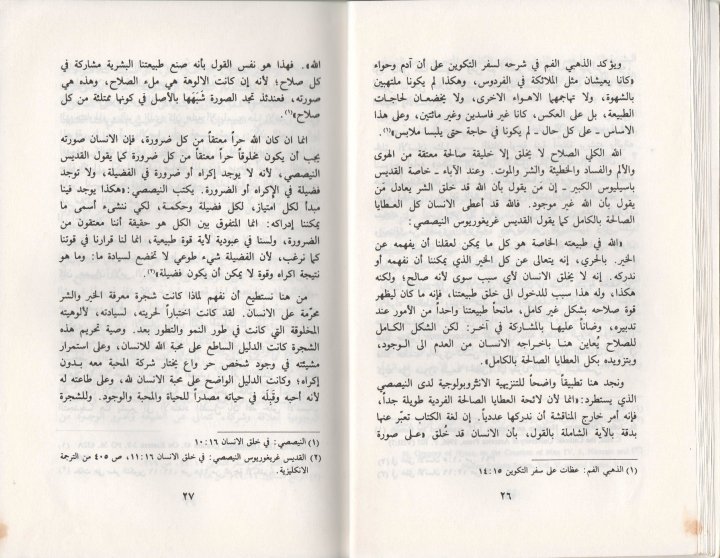 ويؤكد الذهبي الفم في شرحه لسفر التكوين على أن آدم وحواء
«كانا يعيشان مثل الملائكة في الفردوس، وهكذا لم يكونا ملتهبين
بالشهوة، ولا تهاجمهما الاهواء الاخرى، ولا يخضعان لحاجات
الطبيعة، بل على العكس، كانا غير فاسدين وغير مائتين، وعلى هذا
الاساس ـ على كل حال ـ لم يكونا في حاجة حتى يلبسا ملابس»(١).
الله الكلي الصلاح لا يخلق إلا خليقة صالحة معتقة من الهوى
والألم والفساد والخطيئة والشر والموت. وعند الآباء ـ خاصة القديس
باسيليوس الكبير ـ إن مَن يقول بأن الله قد خلق الشر يعادل مَن
يقول بأن الله غير موجود. فالله قد أعطى الانسان كل العطايا
الصالحة بالكامل كما يقول القديس غريغوريوس النيصصي:
«الله في طبيعته الخاصة هو كل ما يمكن لعقلنا أن يفهمه عن
الخير. بالحري، إنه يتعالى عن كل الخير الذي يمكننا أن نفهمه أو
ندركه. إنه لا يخلق الانسان لأي سبب سوى لأنه صالح؛ ولكنه
هكذا، وله هذا سبب للدخول الى خلق طبيعتنا، فإنه ما كان ليظهر
قوة صلاحه بشكل غير كامل، مانحاً طبيعتنا واحداً من الأمور عند
تدبيره، وضاناً عليها بالمشاركة في آخر: لكن الشكل الكامل
للصلاح يُعاين هنا باخراجه الانسان من العدم الى الوجود،
وبتزويده بكل العطايا الصالحة بالكامل».
ونجد هنا تطبيقاً واضحاً للتنزيهية الانثروبولوجية لدى النيصصي
الذي يستطرد: «إنما لأن لائحة العطايا الصالحة الفردية طويلة جداً،
فإنه أمر خارج المناقشة أن ندركها عددياً. إن لغة الكتاب تعبّر عنها
بدقة بالآية الشاملة بالقول، بأن الانسان قد خُلق «على صورة
(١) الذهبي الفم: عظات على سفر التكوين ١٤:١٥
٢٦
الله». فهذا هو نفس القول بأنه صنع طبيعتنا البشرية مشاركة في
كل صلاح؛ لأنه إن كانت الالوهة هي ملء الصلاح، وهذه هي
صورته، فعندئذ تجد الصورة شَبَهَها بالأصل في كونها ممتلئة من كل
صلاح»(١).
انما ان كان الله حراً معتقاً من كل ضرورة، فإن الانسان صورته
يجب أن يكون مخلوقاً حراً معتقاً من كل ضرورة كما يقول القديس
النيصصي، لأنه لا يوجد إكراه أو ضرورة في الفضيلة، ولا توجد
فضيلة في الإكراه أو الضرورة. يكتب النيصصي: «هكذا يوجد فينا
مبدأ لكل امتياز، لكل فضيلة وحكمة، لكي ننشىء أسمى ما
يمكننا إدراكه: انما المتفوق بين الكل هو حقيقة أننا معتقون من
الضرورة، ولسنا في عبودية لأية قوة طبيعية، انما لنا قرارنا في قوتنا
كما نرغب، لأن الفضيلة شيء طوعي لا تخضع لسيادة ما: وما هو
نتيجة اكراه وقوة لا يمكن أن يكون فضيلة»(٢).
من هنا نستطيع أن نفهم لماذا كانت شجرة معرفة الخير والشر
محرّمة على الانسان. لقد كانت اختباراً لحريته، لسيادته، لألوهيته
المخلوقة التي كانت في طور النمو والتطور بعد. وصية تحريم هذه
الشجرة كانت الدليل الساطع على محبة الله للانسان، وعلى استمرار
مشيئته في وجود شخص حر واع يختار شركة المحبة معه بدون
إكراه؛ وكانت الدليل الواضح على محبة الانسان لله، وعلى طاعته له
لأنه أحبه وقَبِلَه في حياته مصدراً للحياة والمحبة والوجود. وللشجرة
(١) النيصصي: في خلق الانسان ١٠:١٦
(٢) القديس غريغوريوس النيصصي: في خلق الانسان ١١:١٦، ص ٤٠٥ من الترجمة
الانكليزية.
٢٧